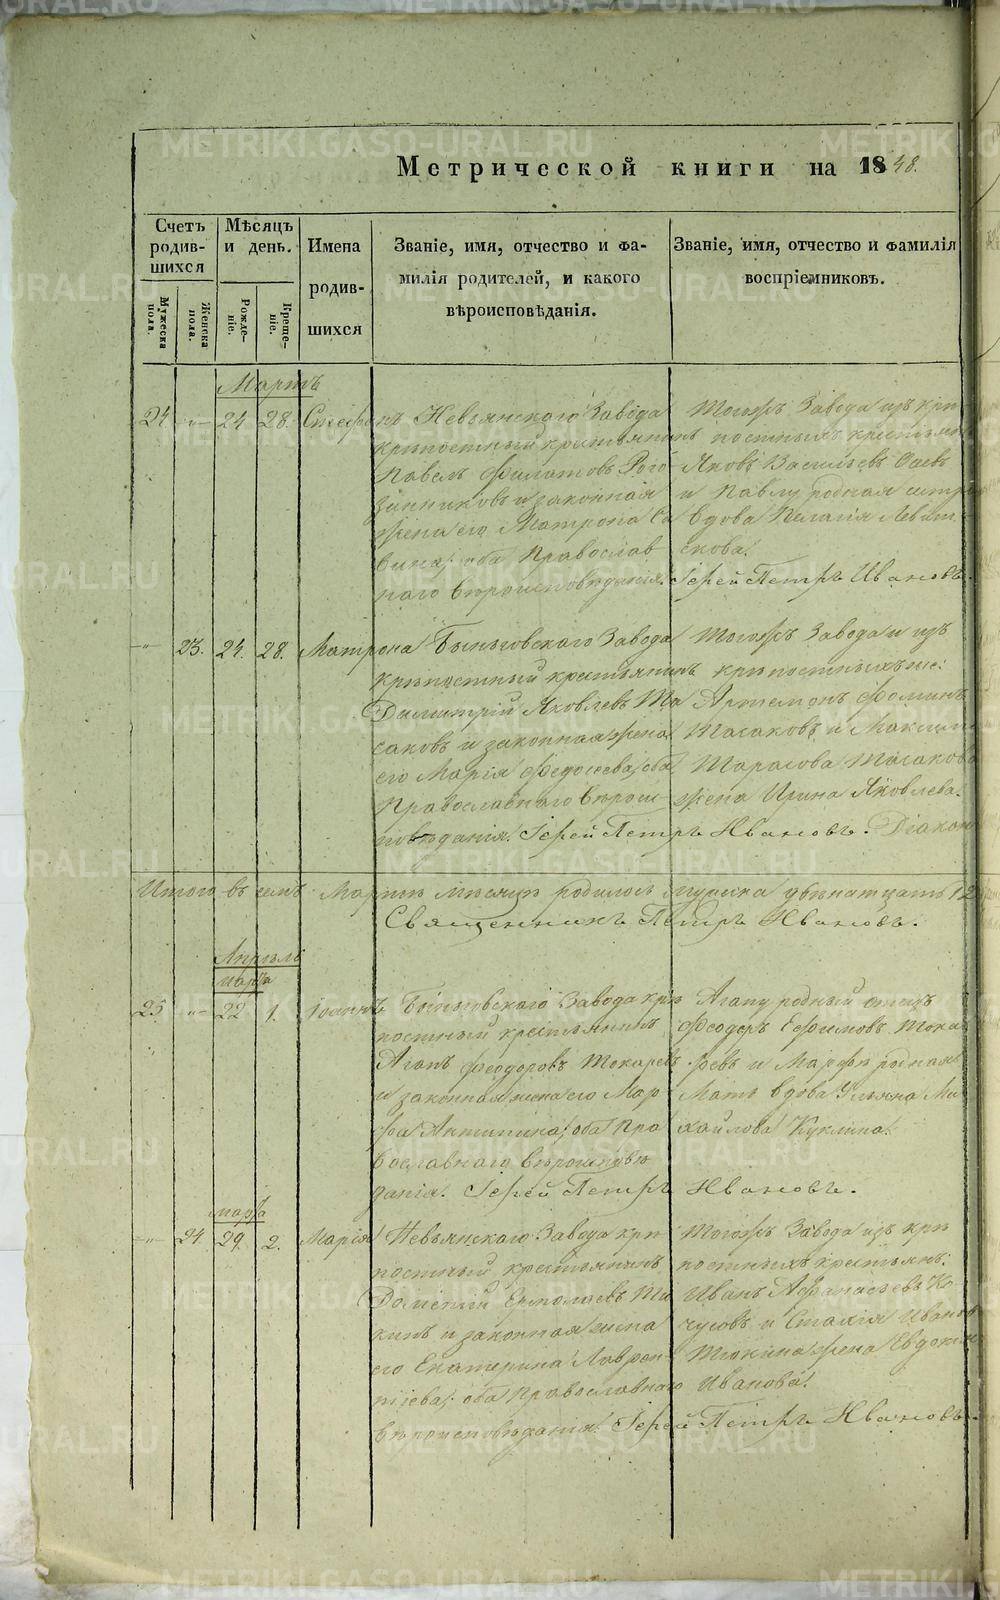 Метрической книги на 1848.
Счетъ родившихся
Мѣсяцъ и день.
Имена родившихся
Званіе, имя, отчество и фа-
милія родителей, и какого
вѣроисповѣданія.
Званіе, имя, отчество и фамилія
воспріемниковъ.
Мужеска пола.
Женска пола.
Рожде-
ніе.
Креще-
ніе.
Мартъ
24 24 28. Стефанъ Невьянскаго Завода
крѣпостный крестьянинъ
Павелъ Филатовъ Рого
зинниковъ и законная
жена его Матрона Са
вина; оба Православ
наго вѣроисповѣданія.
Тогожъ Завода изъ крѣ
постныхъ крестьянъ
Яковъ Васильевъ
и Павлу родная сестра
вдова Пелагія
Іерей Петръ Ивановъ.
23. 24. 28. Матрона Быньговскаго Завода
крѣпостный крестьянинъ
Димитрій Яковлевъ Та
саковъ и законная жена
его Марія Федосеева; оба
Православнаго вѣроис
повѣданія. Іерей Петръ Ивановъ. Діаконъ
Тогожъ Завода и изъ
крѣпостныхъ же:
Артемонъ Фоминъ
Тасаковъ и Максима
Тарасова Тасакова
жена Ирина Яковлева.
Итого въ семъ Мартѣ мѣсяцѣ родилось мужеска двѣнатцать 12
Священникъ Петръ Ивановъ.
Апрѣль
марта
25. 22 1. Іоаннъ Быньговскаго Завода крѣ
постный крестьянинъ
Агапъ Феодоровъ Токаревъ
и законная жена его Мар
фа Антипина; оба Пра
вославнаго вѣроисповѣ
данія. Іерей Петръ Ивановъ.
Агапу родный отецъ
Феодоръ Ефимовъ Тока
ревъ и Марфѣ родная
Мать вдова Ульяна Ми
хайлова Куклина.
марта
24. 29. 2. Марія Невьянскаго Завода крѣ
постный крестьянинъ
Ермолаевъ
и законная жена
его Екатерина Лаврен
тіева; оба Православнаго
вѣроисповѣданія. Іерей Петръ Ивановъ.
Тогожъ Завода изъ крѣ
постныхъ крестьянъ:
Иванъ Афанасьевъ Ко
чусовъ и Иванова
Тюкина жена Евдокія
Иванова.
METRIKI.GASO-URAL.RU